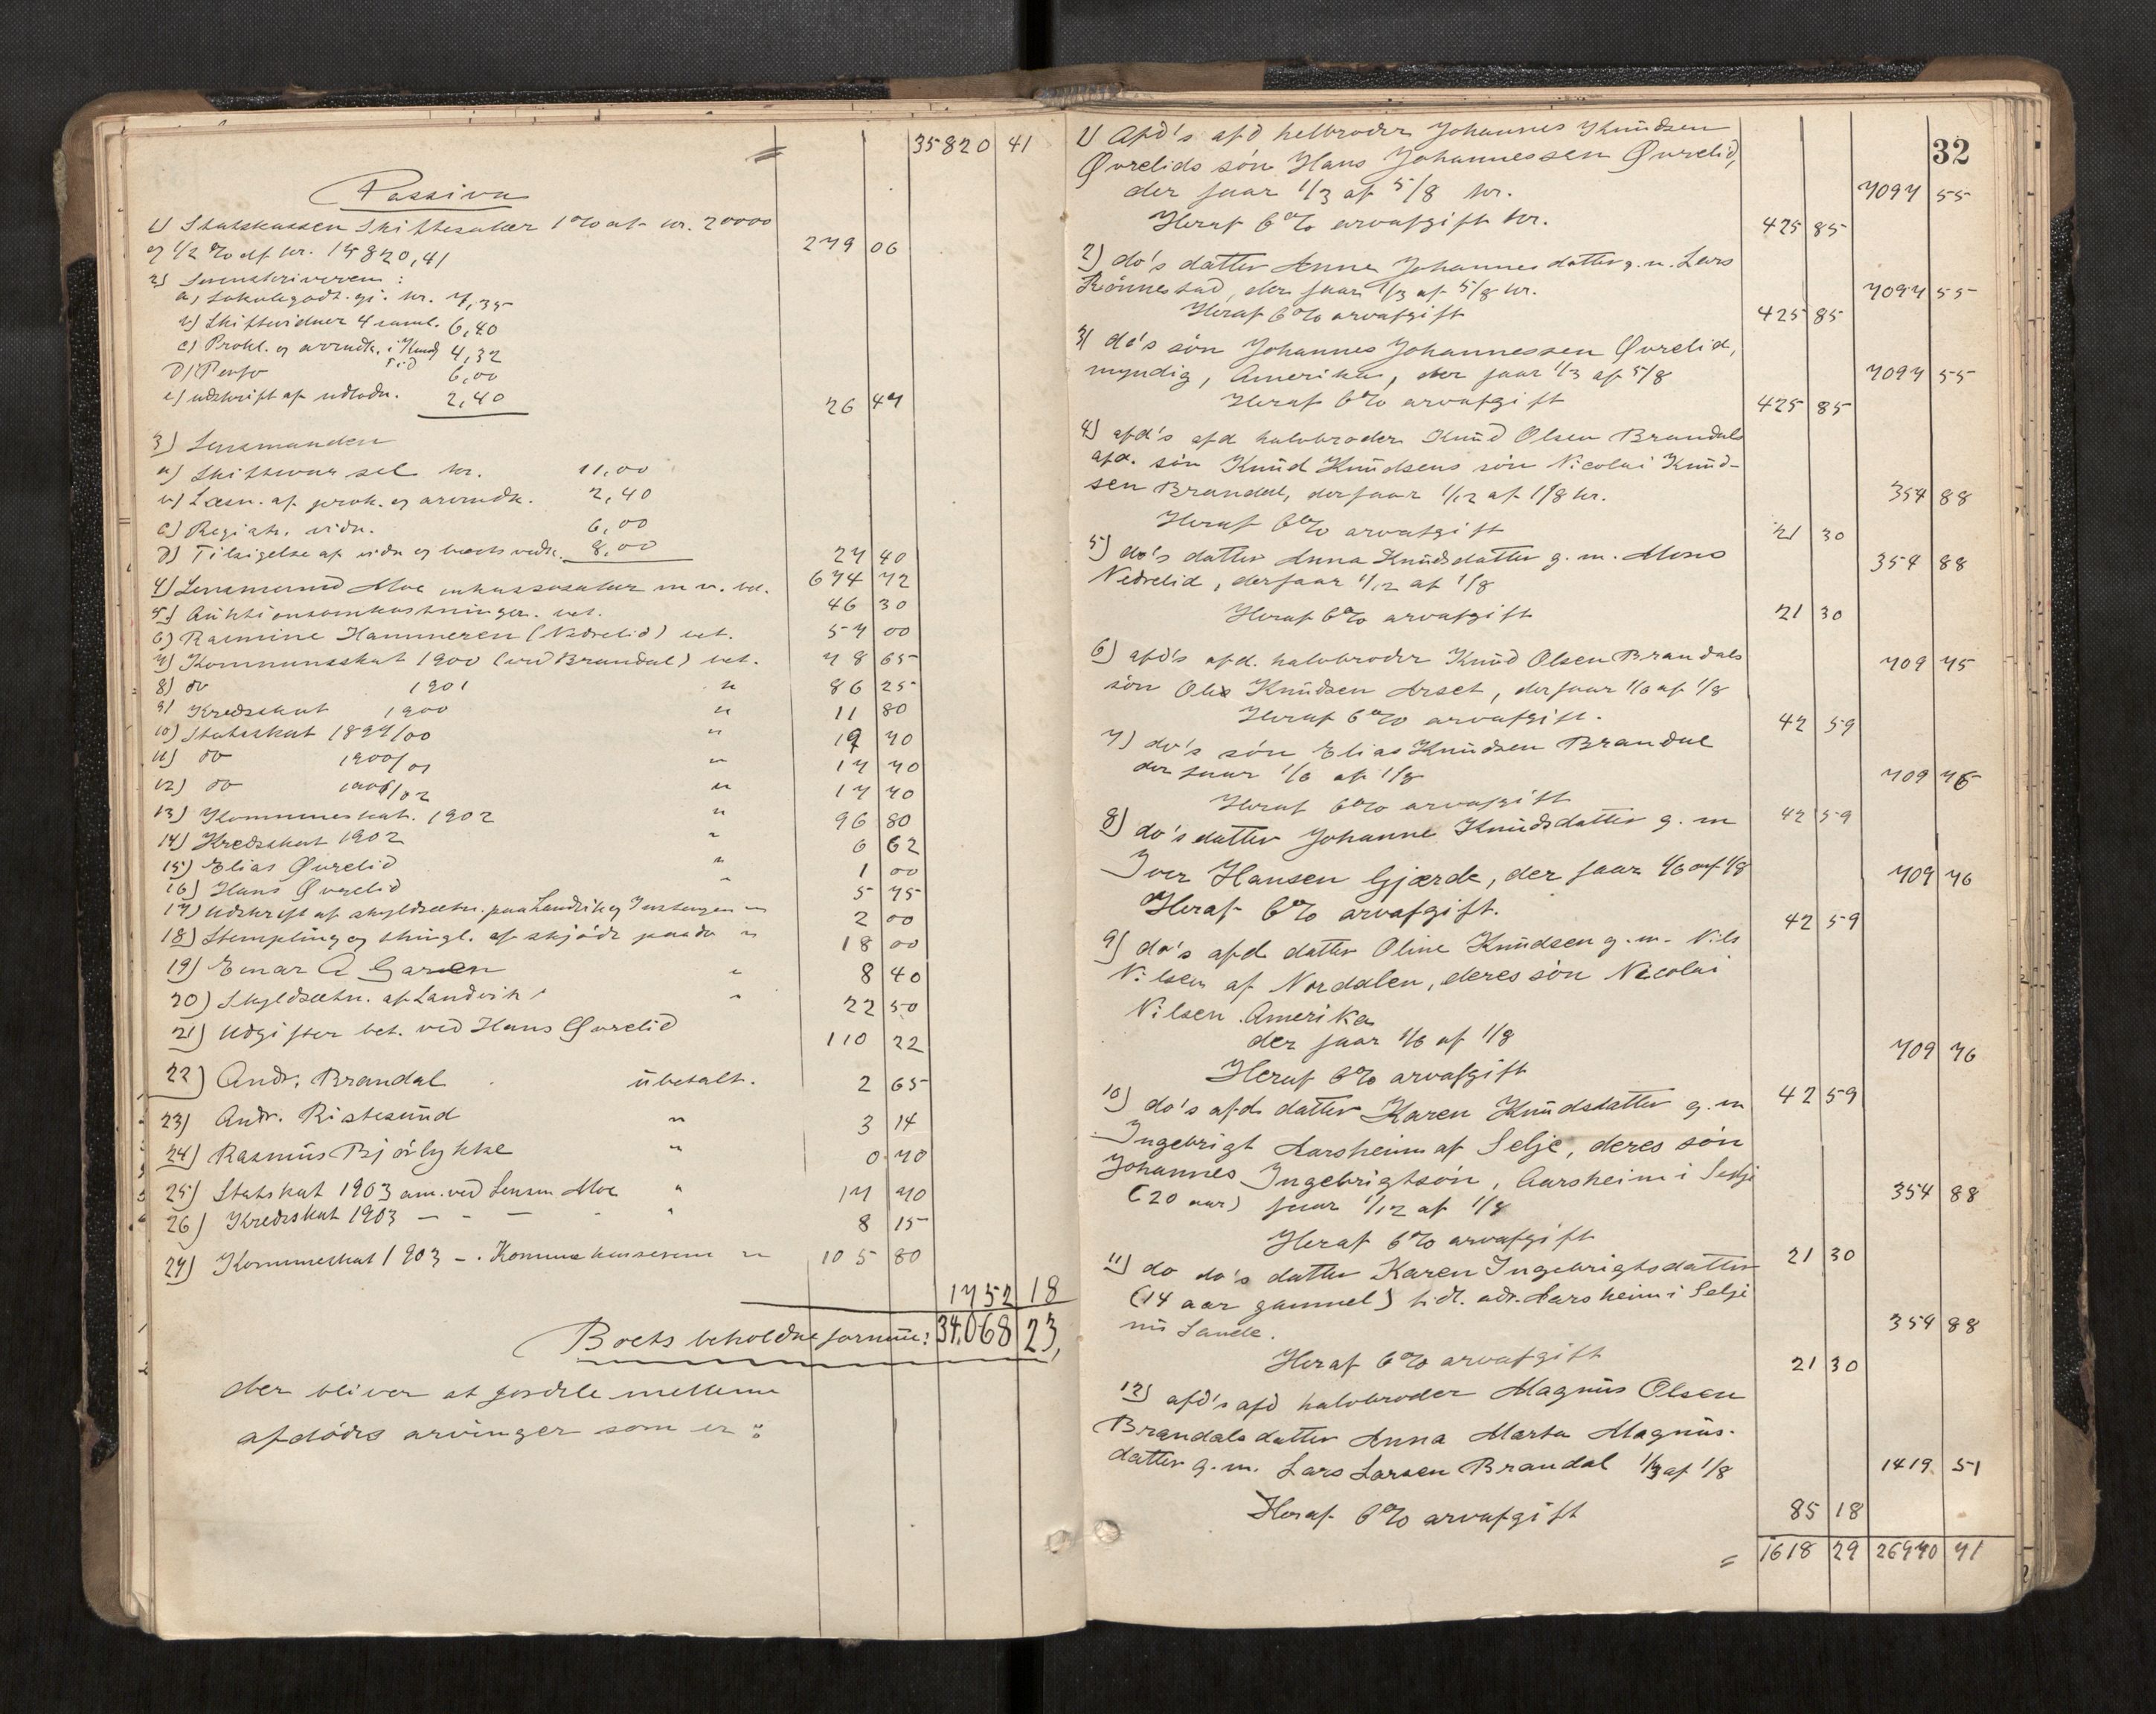 35820 41
Passiva
1) Statskassen Skiftesalær 1% af kr. 20000
og 1/2 % af kr. 15820,41 279 06
2) Sorenskriveren:
a) Lokalegodt. gj. kr. 7,35
b) Skiftevidner 4 saml. 6,40
c) Prokl. og arvindk. i Kund Tid 4,32
d) Porto 6,00
e) udskrift af udlodn. 2,40 26 47
3) Lensmanden
a) Skifteværsel kr. 11,00
b) Læsn. af prok. og arvindk. 2,40
c) Registr. vidn. 6,00
d) Tilsigelse af vidn og bests vedk. 8,00 27 40
4) Lensmand Moe inkassosalær m v. bet. 674 72
5) Auktionsomkostninger. bet. 46 30
6) Rasmine Hammeren (Nedrelid) bet. 57 00
7) Kommuneskat 1900 (ved Brandal) bet. 78 65
8) do 1901 " 86 25
9) Kredsskat 1900 " 11 80
10) Statsskat 1899/00 " 19 70
11) do 1900/01 " 17 70
12) do 1901/02 " 17 70
13) Kommuneskat. 1902 " 96 80
14) Kredsskat 1902 " 6 62
15) Elias Øvrelid " 1 00
16) Hans Øvrelid " 5 75
17) Udskrift af skyldsætn. paa Landvik og " 2 00
18) Stempling og thingl. af skjøde paado " 18 00
19) Einar A Garsen " 8 40
20) Skyldsætn. af Landvik " 22 50
21) Udgifter bet. ved Hans Øvrelid 110 22
22) Andr. Brandal ubetalt. 2 65
23) Andr. Ristesund " 3 14
24) Rasmus Bjørlykke " 0 70
25) Statskat 1903 anm. ved Lensm Moe " 17 70
26) Kredsskat 1903 - - - " 8 15
27) Kommuneskat 1903 - . Kommunekasseren " 105 80
1752 18
Boets beholdne formue: 34,068 23,
der bliver at fordele mellem
afdødes arvinger som er:
32
1) Afd's afd helbroder Johannes Knudsen
Øvrelids søn Hans Johannessen Øvrelid,
der faar 1/3 af 5/8 kr. 7097 55
Heraf 6% arvafgift kr. 425 85
2) do's datter Anne Johannesdatter g. m. Lars
Rønnestad, der faar 1/3 af 5/8 kr. 7097 55
Heraf 6% arvafgift 425 85
3) do's søn Johannes Johannessen Øvrelid,
myndig, Amerika, der faar 1/3 af 5/8 7097 55
Heraf 6% arvafgift 425 85
4) afd's afd halvbroder Knud Olsen Brandals
afd. søn Knud Knudsens søn Nicolai Knud-
sen Brandal, der faar 1/12 af 1/8 kr. 354 88
Heraf 6% arvafgift 21 30
5) do's datter Anna Knudsdatter g. m. Mons
Nedrelid, der faar 1/12 af 1/8 354 88
Heraf 6% arvafgift 21 30
6) afd's afd. halvbroder Knud Olsen Brandals
søn Ole Knudsen Arset, der faar 1/6 af 1/8 709 75
Heraf 6% arvafgift. 42 59
7) do's søn Elias Knudsen Brandal
der faar 1/6 af 1/8 709 76
Heraf 6% arvafgift 42 59
8) do's datter Johanne Knudsdatter g. m
Iver Hansen Gjærde, der faar 1/6 af 1/8 709 76
Heraf 6% arvafgift. 42 59
9) do's afd datter Oline Knudsen g. m. Nils
Nilsen af Nordalen, deres søn Nicolai
Nilsen Amerika
der faar 1/6 af 1/8 709 76
Heraf 6% arvafgift 42 59
10) do's afd datter Karen Knudsdatter g. m
Ingebrigt Aarsheim af Selje, deres søn
Johannes Ingebrigtsøn, Aarsheim i Selje
(20 aar) faar 1/12 af 1/8 354 88
Heraf 6% arvafgift 21 30
11) do do's datter Karen Ingebrigtsdatter
(14 aar gammel) tidl. adr. Aarsheim i Selje
nu Sande. 354 88
Heraf 6% arvafgift 21 30
12) afd's afd halvbroder Magnus Olsen
Brandals datter Anna Marta Magnus-
datter g. m. Lars Larsen Brandal 1/3 af 1/8 1419 51
Heraf 6% arvafgift 85 18
= 1618 29 26970 71